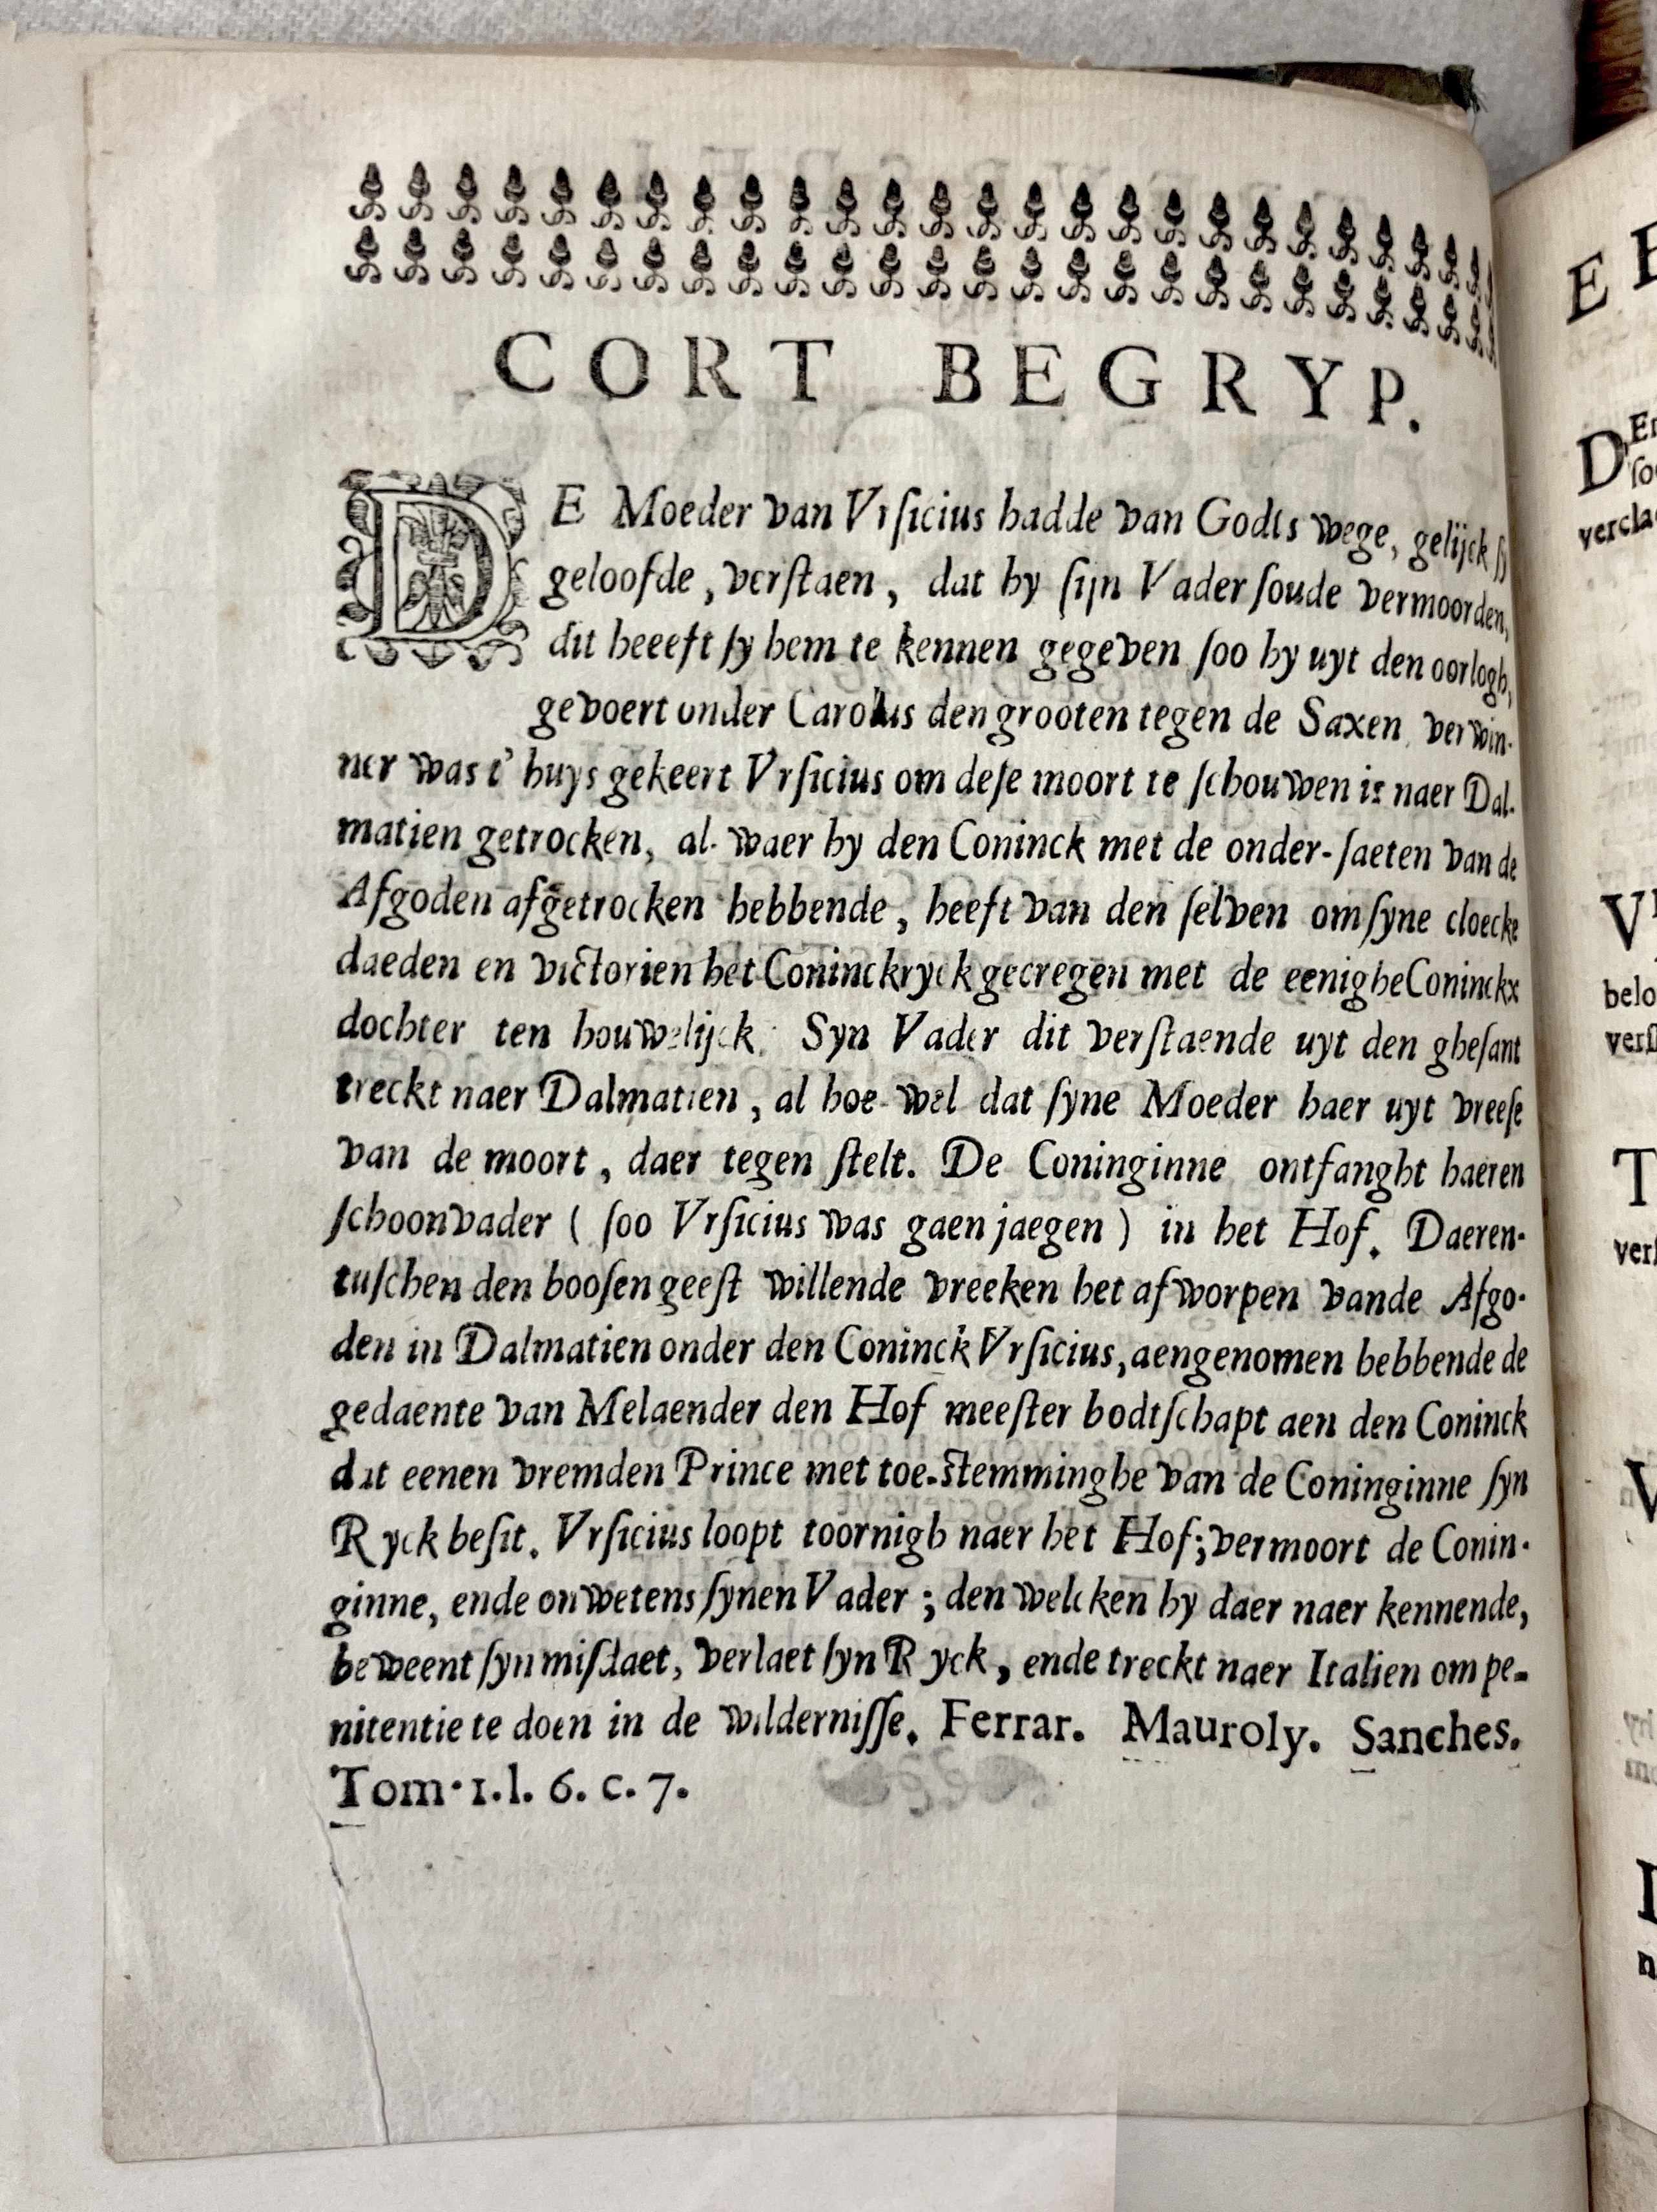 CORT BEGRYP.
DE Moeder van Vrſicius hadde van Godts wege, gelijck ſy
geloofde, verſtaen, dat hy ſijn Vader ſoude vermoorden,
dit heeeft ſy hem te kennen gegeven ſoo hy uyt den oorlogh,
gevoert onder Carolus den grooten tegen de Saxen, verwin-
ner was t' huys gekeert Vrſicius om deſe moort te ſchouwen is naer Dal-
matien getrocken, al-waer hy den Coninck met de onder-ſaeten van de
Afgoden afgetrocken hebbende, heeft van den ſelven om ſyne cloecke
daeden en victorien het Coninckryck gecregen met de eenighe Coninckx
dochter ten houwelijck. Syn Vader dit verſtaende uyt den gheſant
treckt naer Dalmatien, al hoe-wel dat ſyne Moeder haer uyt vreeſe
van de moort, daer tegen ſtelt. De Coninginne ontfanght haeren
ſchoonvader ( ſoo Vrſicius was gaen jaegen ) in het Hof. Daeren-
tuſchen den booſen geeſt willende vreeken het afworpen vande Afgo-
den in Dalmatien onder den Coninck Vrſicius, aengenomen hebbende de
gedaente van Melaender den Hof meeſter bodtſchapt aen den Coninck
dat eenen vremden Prince met toe-ſtemminghe van de Coninginne ſyn
Ryck beſit. Vrſicius loopt toornigh naer het Hof; vermoort de Conin-
ginne, ende onwetens ſynen Vader; den welcken hy daer naer kennende,
beweent ſyn miſdaet, verlaet ſyn Ryck, ende treckt naer Italien om pe-
nitentie te doen in de wilderniſſe. Ferrar. Mauroly. Sanches.
Tom. 1. l. 6. c. 7.